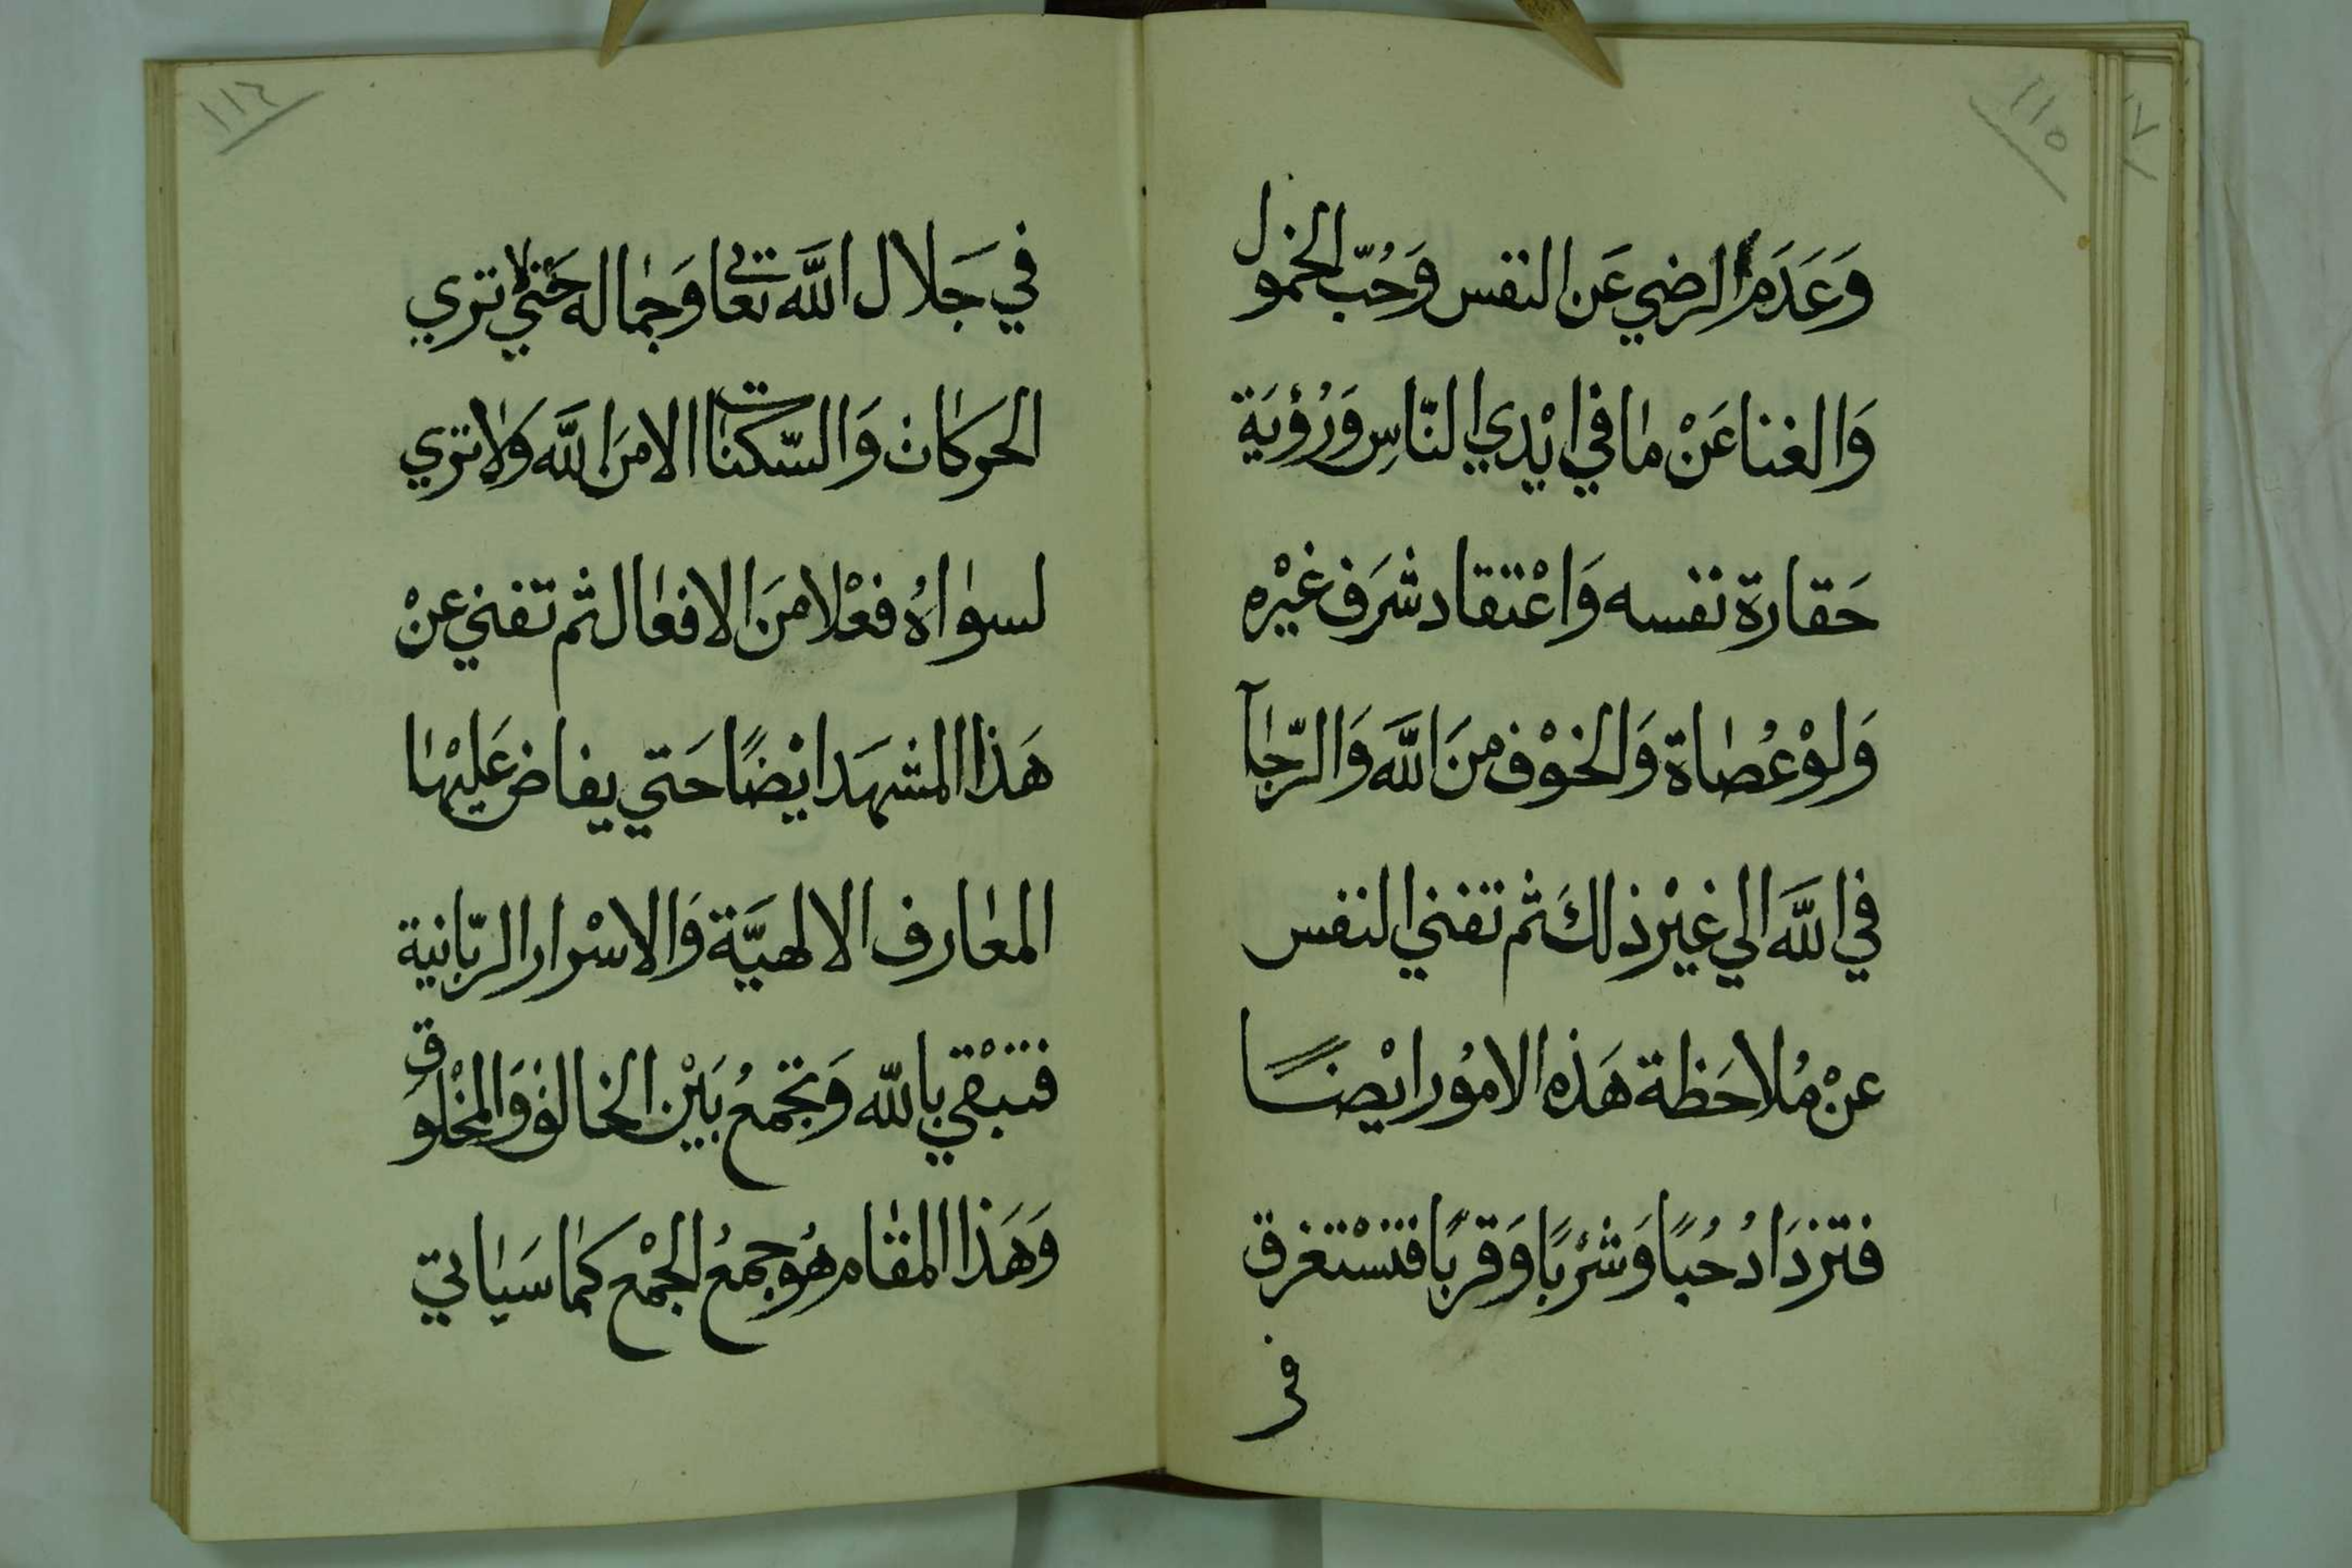 ١١٥
وَعَدَم الرضي عَن النفس وَحُبّ الخمول
وَالغنا عَنْ مٰا في ايْدي النّاسِ وَرُؤيَة
حَقارة نفسه وَاعْتقاد شَرَف غيْره
وَلوْ عُصٰاة وَالخوْف منَ اللَّه وَالرّجٰآ
في اللَّه الي غيْر ذلكَ ثم تفني النفس
عنْ مُلاحَظة هَذه الامُور ايْضًا
فتزدَادُ حُبًا وَشرْبًا وَقربًا فتسْتغرق
في
١١٦
في جَلال اللَّه تعالي وَجمٰاله حَتي لا تري
الحركات وَالسّكنٰات الا منَ اللَّه وَلا تري
لسوٰاهُ فعْلا منَ الافعٰال ثم تفني عنْ
هَذا المشهَد ايْضًا حَتي يفاض عَليْهٰا
المعٰارف الالهيَّة وَالاسْرار الربّانية
فتبْقي بالله وَتجمعُ بَيْن الخالق وَالمخْلوق
وَهَذا المقٰام هُو جمعُ الجمْع كمٰا سَيٰاتي